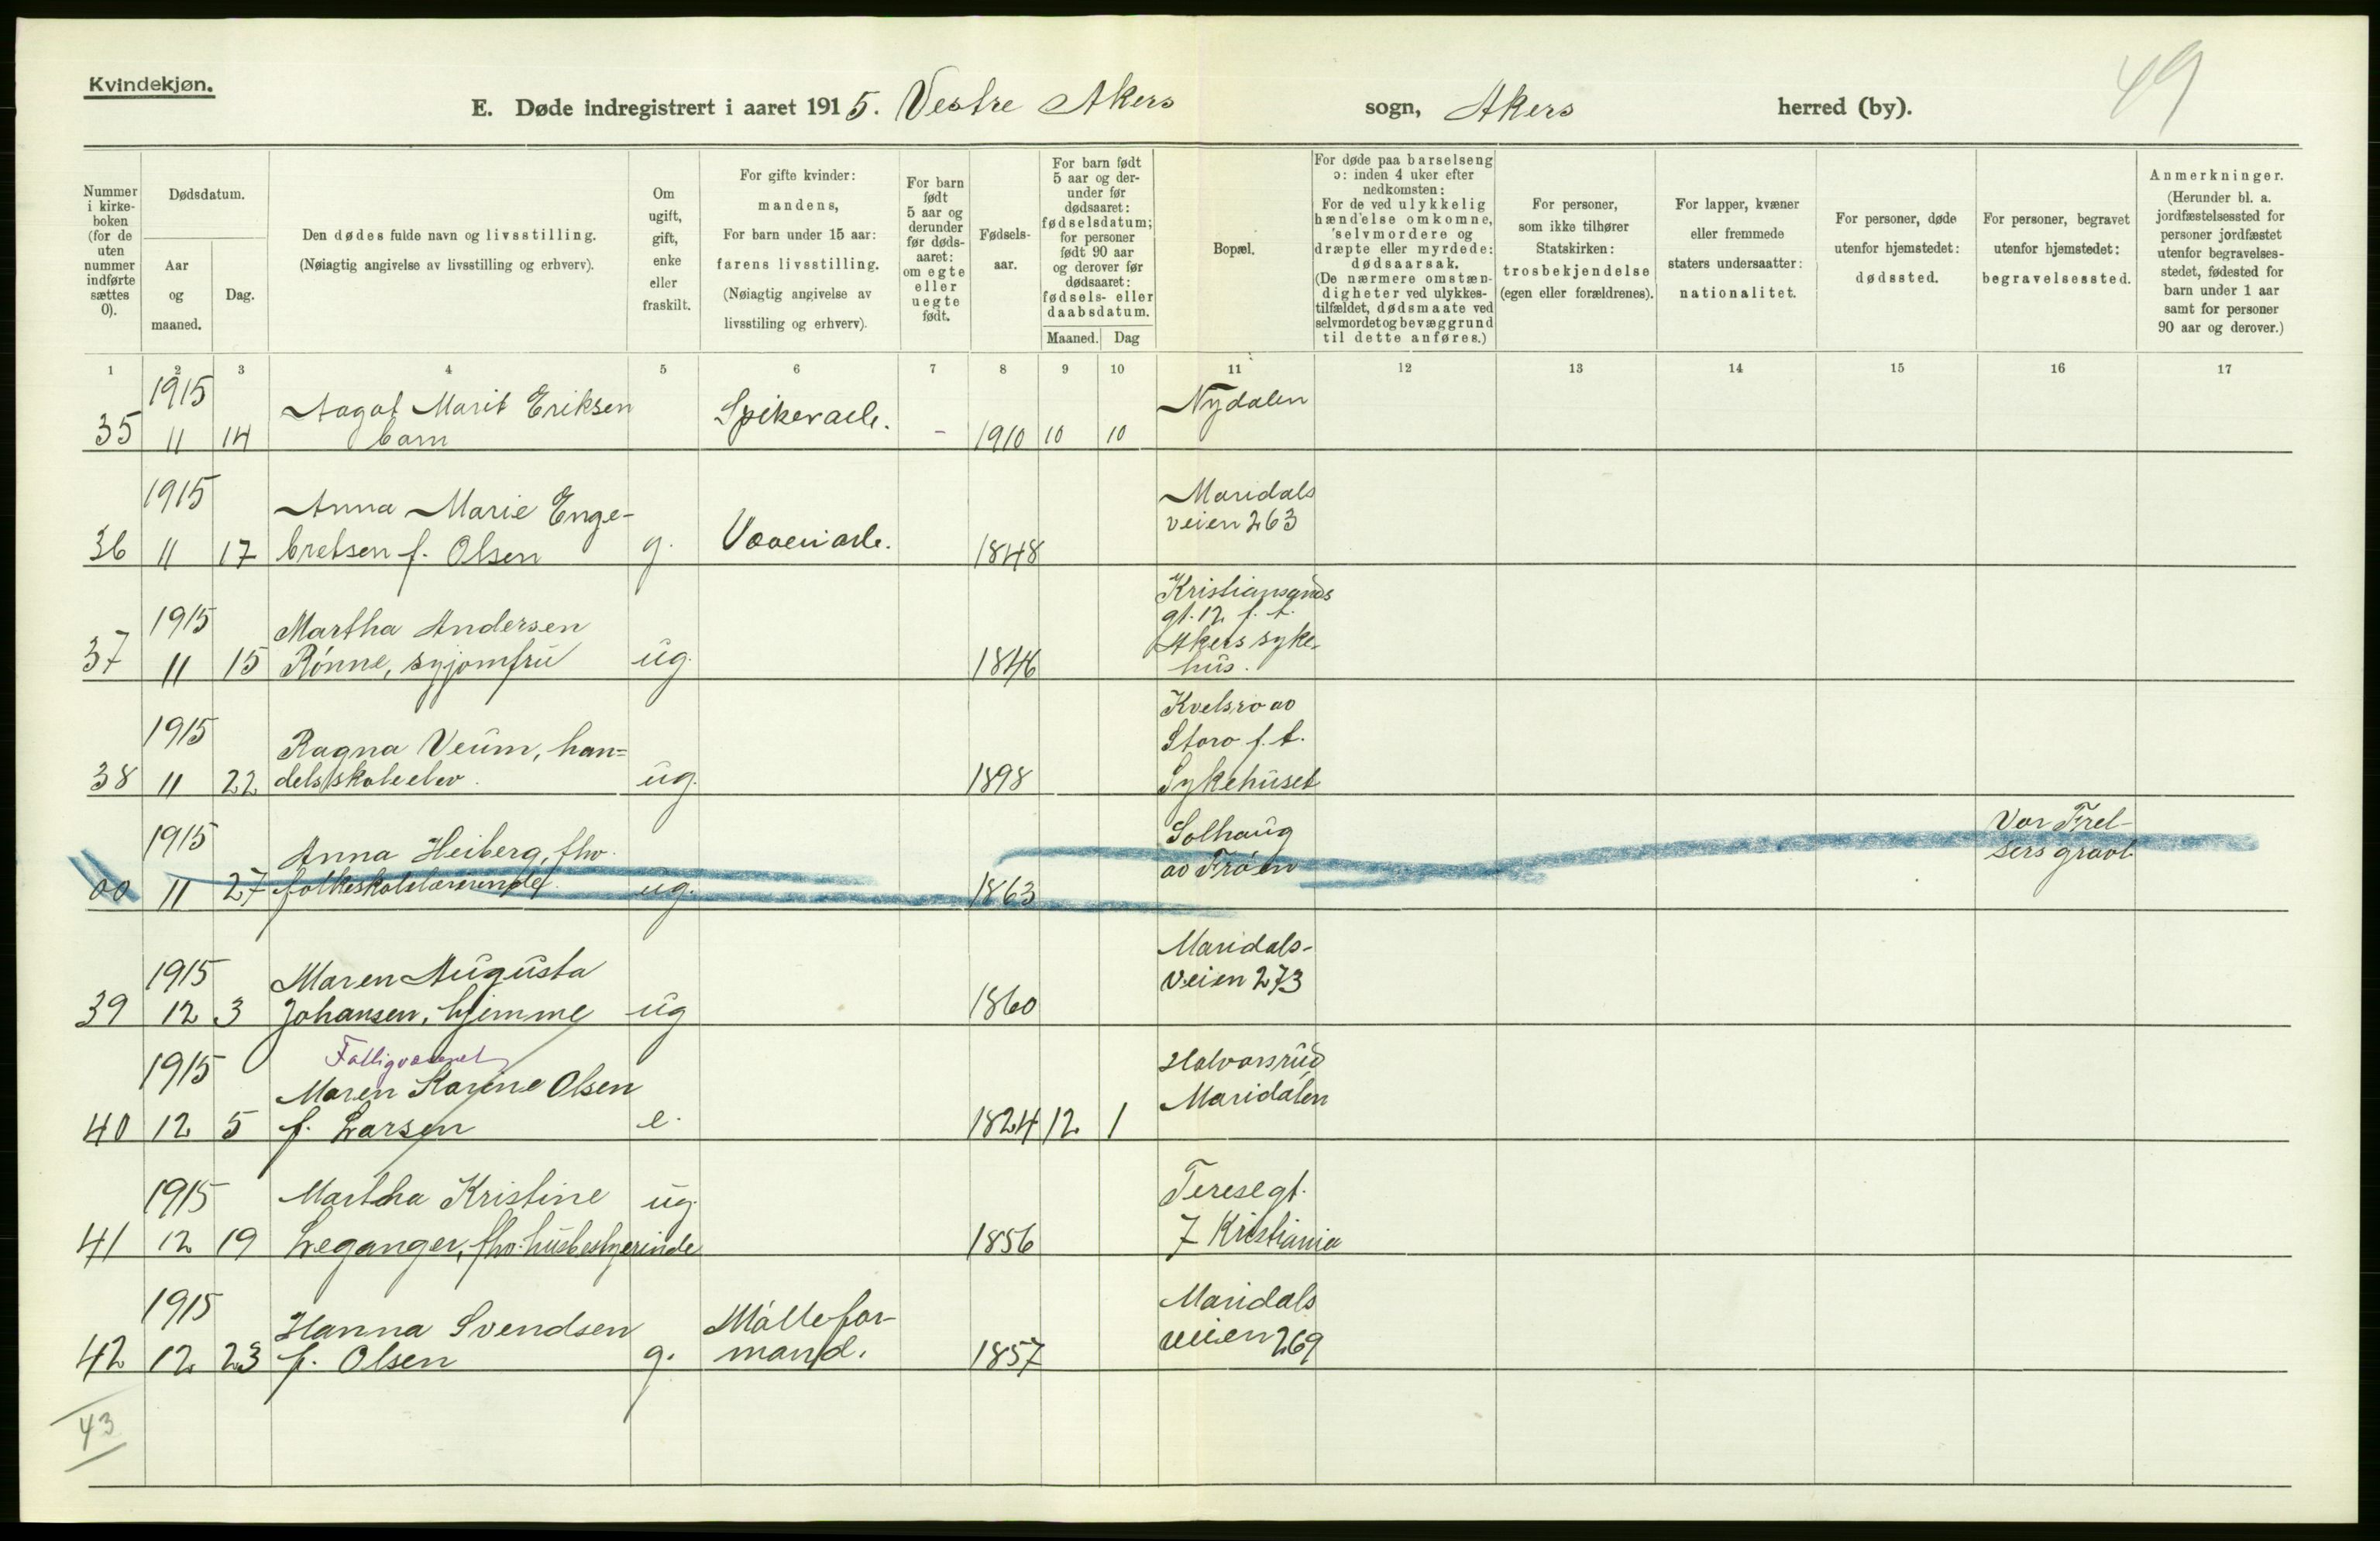 Kvindekjøn.
49
E. Døde indregistrert i aaret 1915. Vestre Akers sogn, Akers herred (by).
Nummer i kirke-boken (for de uten nummer indførte sættes 0).
Dødsdatum.
Aar og maaned.
Dag.
Den dødes fulde navn og livsstilling.
(Nøiagtig angivelse av livsstilling og erhverv).
Om ugift, gift, enke eller fraskilt.
For gifte kvinder: mandens,
For barn under 15 aar: farens livsstilling.
(Nøiagtig angivelse av livsstiling og erhverv).
For barn født 5 aar og derunder før døds-aaret: om egte eller uegte født.
Fødsels-aar.
For barn født 5 aar og der-under før dødsaaret: fødselsdatum; for personer født 90 aar og derover før dødsaaret: fødsels- eller daabsdatum.
Maaned. Dag
Bopæl.
For døde paa barselseng ɔ: inden 4 uker efter nedkomsten:
For de ved ulykkelig hændelse omkomne, selvmordere og dræpte eller myrdede: dødsaarsak.
(De nærmere omstæn-digheter ved ulykkes-tilfældet, dødsmaate ved selvmordet og bevæggrund til dette anføres.)
For personer, som ikke tilhører Statskirken: trosbekjendelse (egen eller forældrenes).
For lapper, kvæner eller fremmede staters undersaatter: nationalitet.
For personer, døde utenfor hjemstedet: dødssted.
For personer, begravet utenfor hjemstedet: begravelsessted.
Anmerkninger.
(Herunder bl. a. jordfæstelsessted for personer jordfæstet utenfor begravelses-stedet, fødested for barn under 1 aar samt for personer 90 aar og derover.)
1 2 3 4 5 6 7 8 9 10 11 12 13 14 15 16 17
1915 Aagot Marit Eriksen Spikerarb. Nydalen
35 11 14 barn - 1910 10 10
1915 Anna Marie Enge- Maridals
veien 263
36 11 17 bretsen f. Olsen g. Væveriarb. 1848
Kristiansands
gt. 12 f. t.
1915 Martha Andersen Akers syke-
37 11 15 Rönne, syjomfru ug. 1846 hus.
Kvelsro av
1915 Ragna Veum, han= Storo f. t.
38 11 22 delsskoleelev. ug. 1898 Sykehuset
1915 Anna Heiberg, fhv. Solhaug Vor Frel-
av Fröen sers gravl.
00 11 27 folkeskolelærerinde. ug. 1863
Maridals-
1915 Maren Augusta veien 273
39 12 3 Johansen, hjemme ug 1860
Fattigvæsenet
1915 Maren Karine Olsen Halvorsrud
Maridalen
40 12 5 f. Larsen e. 1824 12 1
1915 Martha Kristine ug. Teresegt.
41 12 19 Leganger, fhv. husbestyrerinde 1856 7 Kristiania
1915 Hanna Svendsen Möllefor- Maridals
42 12 23 f. Olsen g. mand. 1857 veien 269
43